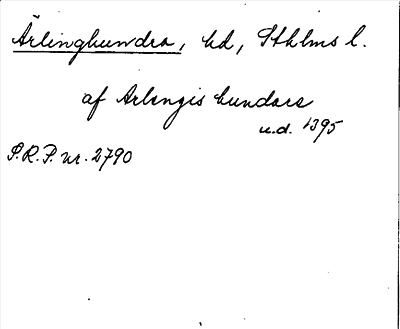 Ärlinghundra, hd, Sthlms l.
af Arlengis hundare
u.d. 1395
S.R.P. nr. 2790